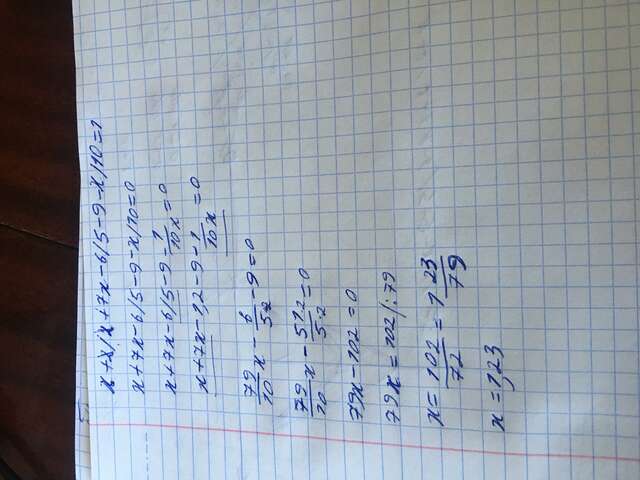 x+x/x+7x-6/5-9-x/10=1
x+7x-6/5-9-x/10=0
x+7x-6/5-9-1/10x=0
x+7x-1,2-9-1/10x=0
79/10x-6/5·2-9=0
79/10x-51·2/5·2=0
79x-102=0
79x=102/:79
x=102/72=1 23/79
x=1,23